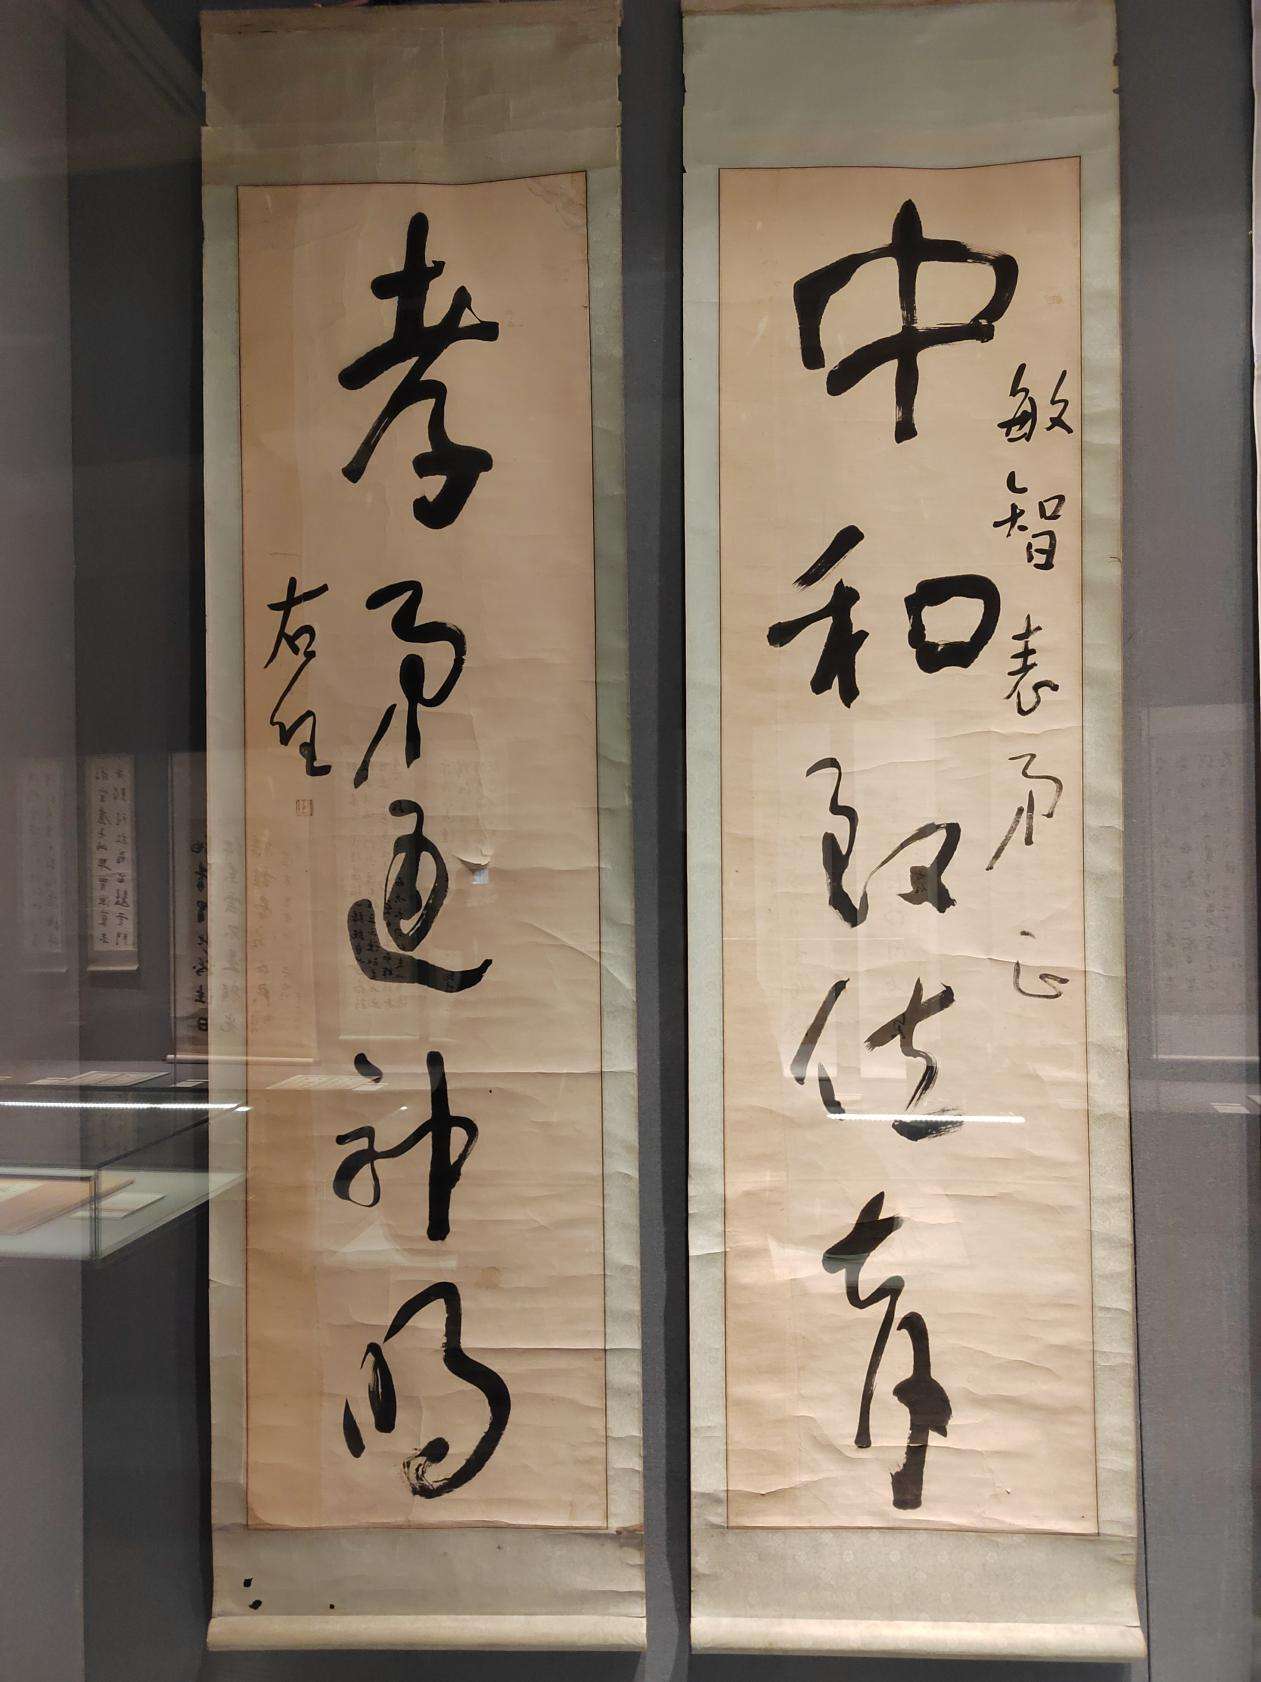 中和致位育
敏智表弟正
孝弟通神明
右任